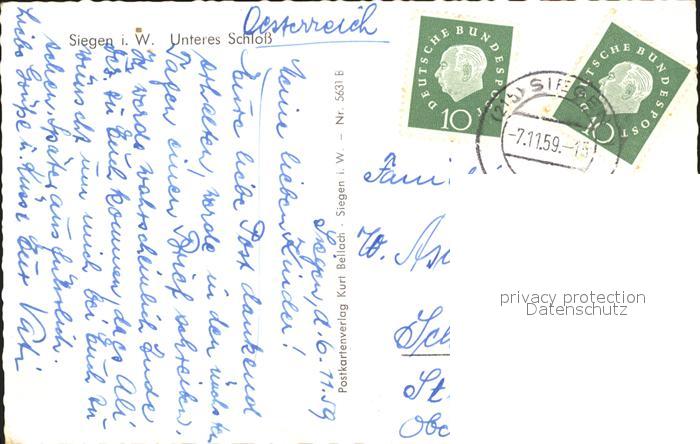 Siegen i. W. Unteres Schloß
Oesterreich
DEUTSCHE BUNDESPOST
10
DEUTSCHE BUNDESPOST
10
SIEGEN
-7.11.59.-15
Postkartenverlag Kurt Bellach · Siegen i. W. — Nr. 5631 B
Siegen, d. 6.11.59
Meine lieben Kinder!
Eure liebe Post dankend
erhalten, werde in den nächsten
Tagen einen Brief schreiben.
werde wahrscheinlich Ende
zu Euch kommen, dass
wünscht um mich bei Euch zu
sehen. Später ausführlich.
Liebe Grüße u. Küsse Euer Vati
Famil
W. As
Sch
St.
Obe
privacy protection
Datenschutz